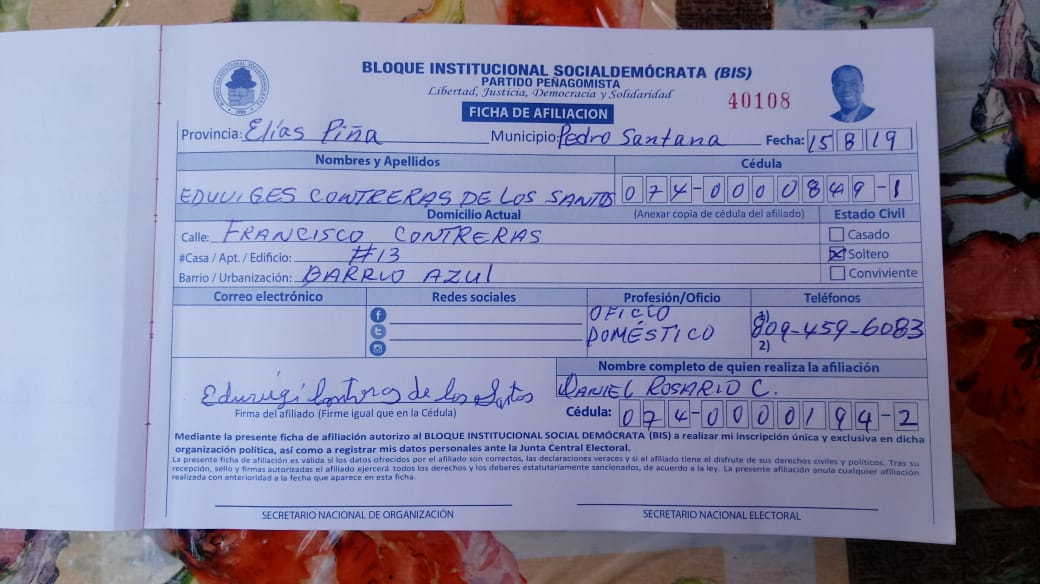 BLOQUE INSTITUCIONAL SOCIALDEMÓCRATA (BIS)
PARTIDO PEÑAGOMISTA
Libertad, Justicia, Democracia y Solidaridad
40108
FICHA DE AFILIACION
Provincia: Elías Piña Municipio: Pedro Santana Fecha: 15 8 19
Nombres y Apellidos Cédula
EDUVIGES CONTRERAS DE LOS SANTOS 074-0000849-1
Domicilio Actual (Anexar copia de cédula del afiliado) Estado Civil
Calle: FRANCISCO CONTRERAS Casado
#Casa / Apt. / Edificio: #13 Soltero
Barrio / Urbanización: BARRIO AZUL Conviviente
Correo electrónico Redes sociales Profesión/Oficio Teléfonos
OFICIO DOMÉSTICO
1) 809-459-6083
2)
Nombre completo de quien realiza la afiliación
DANIEL ROSARIO C.
Firma del afiliado (Firme igual que en la Cédula) Cédula: 074-0000194-2
Mediante la presente ficha de afiliación autorizo al BLOQUE INSTITUCIONAL SOCIAL DEMÓCRATA (BIS) a realizar mi inscripción única y exclusiva en dicha
organización política, así como a registrar mis datos personales ante la Junta Central Electoral.
La presente ficha de afiliación es válida si los datos ofrecidos por el afiliado son correctos, las declaraciones veraces y si el afiliado tiene el disfrute de sus derechos civiles y políticos. Tras su
recepción, sello y firmas autorizadas el afiliado ejercerá todos los derechos y los deberes estatutariamente sancionados, de acuerdo a la ley. La presente afiliación anula cualquier afiliación
realizada con anterioridad a la fecha que aparece en esta ficha.
SECRETARIO NACIONAL DE ORGANIZACIÓN SECRETARIO NACIONAL ELECTORAL